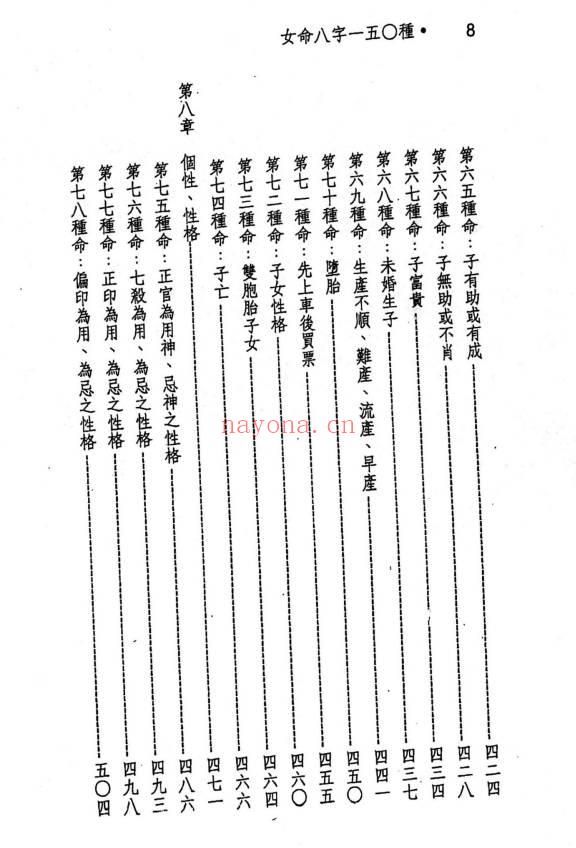 女命八字一五〇種・ 8
第六五種命：子有助或有成 四二四
第六六種命：子無助或不肖 四二八
第六七種命：子富貴 四三四
第六八種命：未婚生子 四三七
第六九種命：生產不順、難產、流產、早產 四四一
第七十種命：墮胎 四五〇
第七一種命：先上車後買票 四五五
第七二種命：子女性格 四六〇
第七三種命：雙胞胎子女 四六四
第七四種命：子亡 四六六
第八章 個性、性格 四七一
第七五種命：正官為用神、忌神之性格 四八六
第七六種命：七殺為用、為忌之性格 四九三
第七七種命：正印為用、為忌之性格 四九八
第七八種命：偏印為用、為忌之性格 五〇四
nayona.cn